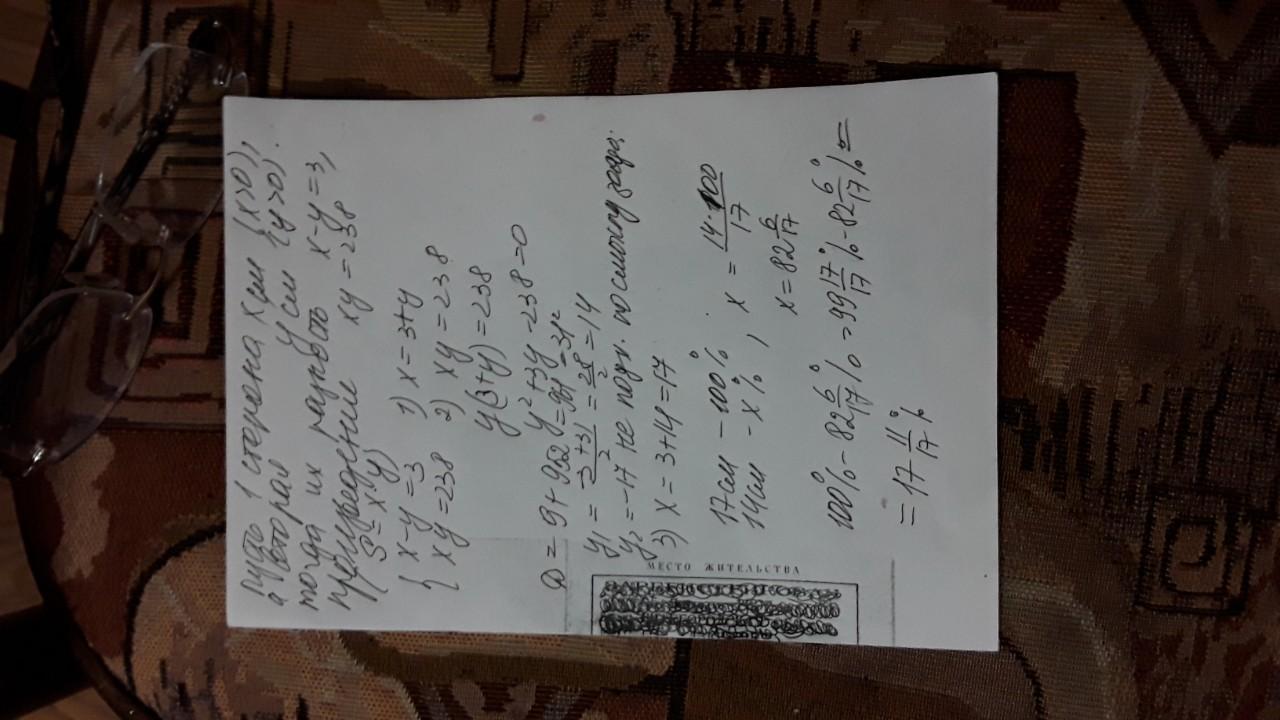 пусть 1 сторона x см (x>0),
а вторая y см (y>0).
тогда их разность x-y=3,
произведение xy=238
(S=x·y)
{ x-y=3 1) x=3+y
xy=238 2) xy=238
y(3+y)=238
y²+3y-238=0
D=9+952=961=31²
y₁=(-3+31)/2=28/2=14
y₂=-17 не подх. по смыслу задачи.
3) x=3+14=17
17см - 100%
14см - x% , x = 14·100/17
x=82 6/17
100%-82 6/17%=99 17/17%-82 6/17%=
=17 11/17%
МЕСТО ЖИТЕЛЬСТВА